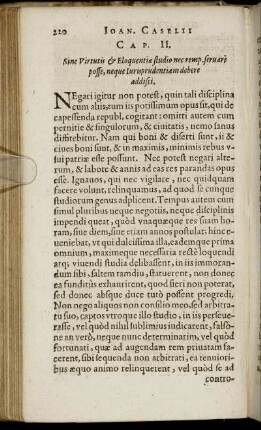 220 IOAN. CASELII
CAP. II.
Sine Virtutis & Eloquentiæ studio nec remp. servari
posse, neque Iurisprudentiam debere
addisci.
NEgari igitur non potest, quin tali disciplina
cum aliis, tum iis potissimum opus sit, qui de
capessenda republ. cogitant: omitti autem cum
pernitie & singulorum, & civitatis, nemo sanus
diffitebitur. Nam qui boni & diserti sunt, ii &
cives boni sunt, & in maximis, minimis rebus v-
sui patriæ esse possunt. Nec potest negari alte-
rum, & labore & annis ad eas res parandis opus
esse. Ignauos, qui nec vigilare, nec quidquam
facere volunt, relinquamus, ad quod se cunque
studiorum genus adplicent. Tempus autem cum
simul pluribus neque negotiis, neque disciplinis
impendi queat, quòd vnaquæque res suam ho-
ram, siue diem, siue etiam annos postulat: hinc e-
ueniebat, vt qui dulcissima illa, eademque prima
omnium, maximeque necessaria rectè loquendi
atq; viuendi studia delibassent, in iis immoran-
dum sibi, saltem tamdiu, statuerent, non donec
ea funditùs exhaurirent, quod fieri non poterat,
sed donec absque duce tutò possent progredi.
Non nego aliquos non consilio meo, sed arbitra-
tu suo, captos vtroque illo studio, in iis perseue-
rasse, vel quòd nihil sublimius iudicarent, falsó-
ne an verò, neque nunc determinarim, vel quòd
fortunati, quæ ad augendam rem priuatam fa-
cerent, sibi sequenda non arbitrati, ea tenuiori-
bus æquo animo relinquerent, vel quòd se ad
contro-